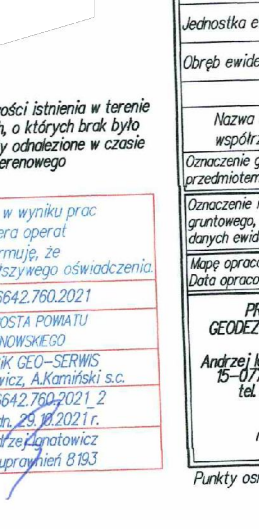 ości istnienia w terenie
h, o których brak było
y odnalezione w czasie
erenowego
w wyniku prac
era operat
rmuję, że
łszywego oświadczenia.
6642.760.2021
OSTA POWIATU
NOWSKIEGO
iK GEO-SERWIS
wicz, A.Kamiński s.c.
6642.760.2021_2
dn. 29.10.2021 r.
drzej Ignatowicz
uprawnień 8193
Jednostka e
Obręb ewide
Nazwa
współrz
Oznaczenie g
przedmiotem
Oznaczenie
gruntowego,
danych ewid
Mapę opraco
Data opraco
PR
GEODEZ
Andrzej I
15-077
tel.
Punkty osn